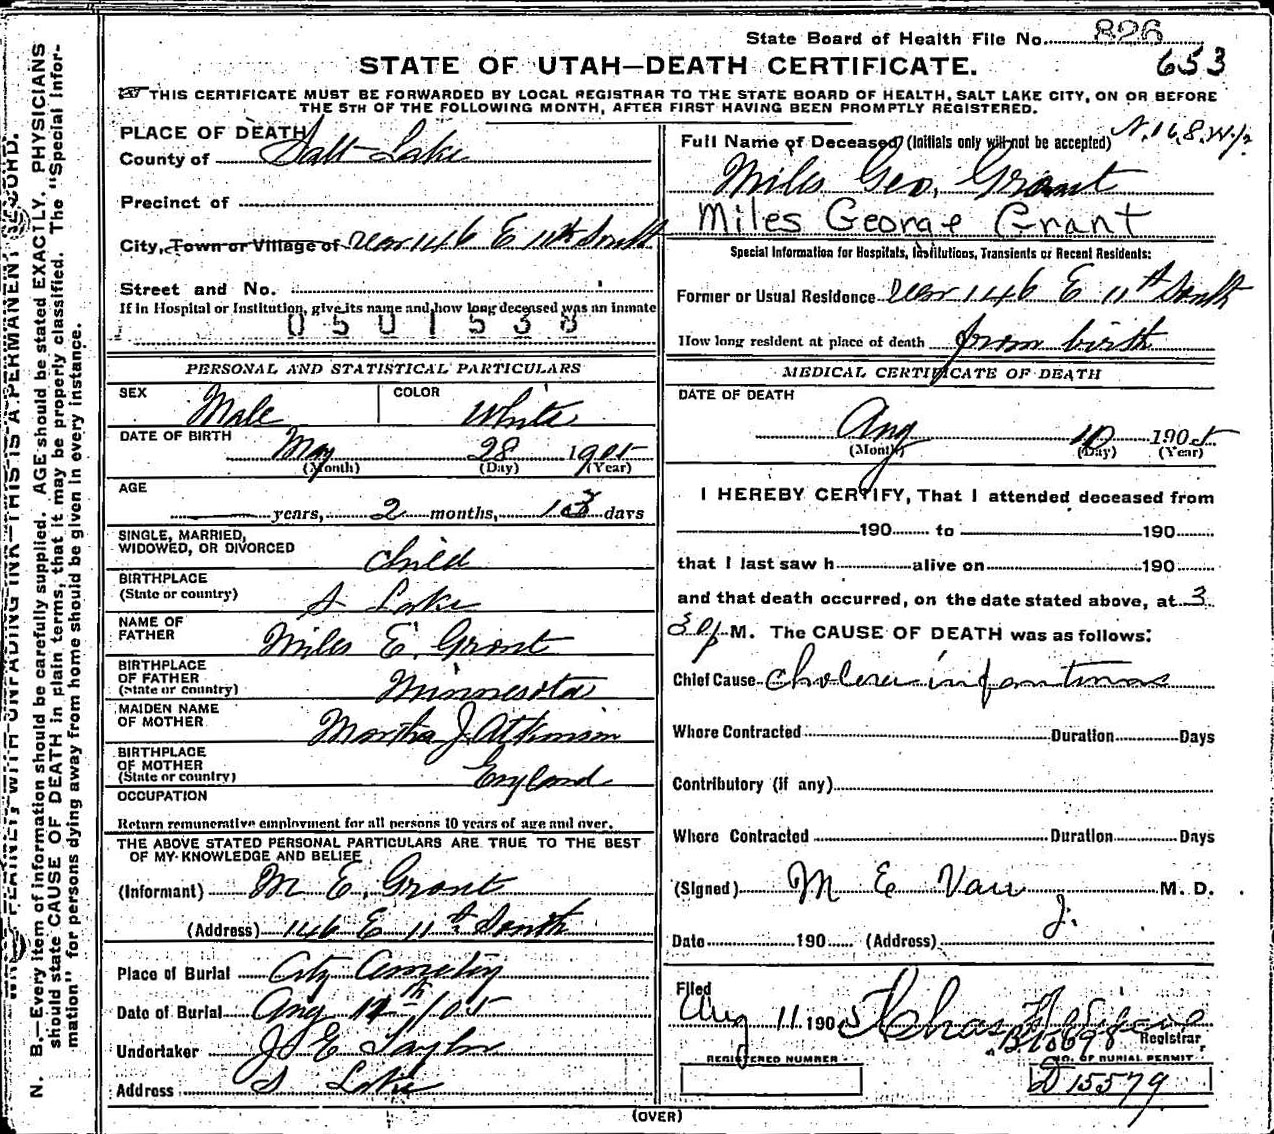 State Board of Health File No. 826
653
STATE OF UTAH—DEATH CERTIFICATE.
THIS CERTIFICATE MUST BE FORWARDED BY LOCAL REGISTRAR TO THE STATE BOARD OF HEALTH, SALT LAKE CITY, ON OR BEFORE
THE 5TH OF THE FOLLOWING MONTH, AFTER FIRST HAVING BEEN PROMPTLY REGISTERED.
N. B.—Every item of information should be carefully supplied. AGE should be stated EXACTLY. PHYSICIANS
should state CAUSE OF DEATH in plain terms, that it may be properly classified. The "Special Infor-
mation" for persons dying away from home should be given in every instance.
WITH UNFADING INK—THIS IS A PERMANENT RECORD.
PLACE OF DEATH
County of Salt Lake
Precinct of
City, Town or Village of rear 146 E 11th South
Street and No.
If in Hospital or Institution, give its name and how long deceased was an inmate
0501538
PERSONAL AND STATISTICAL PARTICULARS
SEX Male
COLOR White
DATE OF BIRTH May 28 1905
(Month) (Day) (Year)
AGE
years, 2 months, 13 days
SINGLE, MARRIED,
WIDOWED, OR DIVORCED child
BIRTHPLACE
(State or country) S Lake
NAME OF
FATHER Miles E. Grant
BIRTHPLACE
OF FATHER
(State or country) Minnesota
MAIDEN NAME
OF MOTHER Martha J. Atkinson
BIRTHPLACE
OF MOTHER
(State or country) England
OCCUPATION
Return remunerative employment for all persons 10 years of age and over.
THE ABOVE STATED PERSONAL PARTICULARS ARE TRUE TO THE BEST
OF MY KNOWLEDGE AND BELIEF
(Informant) M E. Grant
(Address) 146 E 11th South
Place of Burial City Cemetery
Date of Burial Aug 12th / 05
Undertaker J E Taylor
Address S Lake
Full Name of Deceased (Initials only will not be accepted)
Miles Geo. Grant
Miles George Grant
Special Information for Hospitals, Institutions, Transients or Recent Residents:
Former or Usual Residence Rear 146 E 11th South
How long resident at place of death from birth
MEDICAL CERTIFICATE OF DEATH
DATE OF DEATH
Aug 10 1905
(Month) (Day) (Year)
I HEREBY CERTIFY, That I attended deceased from
190 to 190
that I last saw h alive on 190
and that death occurred, on the date stated above, at 3
30 p M. The CAUSE OF DEATH was as follows:
Chief Cause cholera infantum
Where Contracted Duration Days
Contributory (if any)
Where Contracted Duration Days
(Signed) M E Van M. D.
Date 190 (Address)
Filed
Aug 11 1905 Chas
Registrar
REGISTERED NUMBER
NO. OF BURIAL PERMIT
D 15579
(OVER)